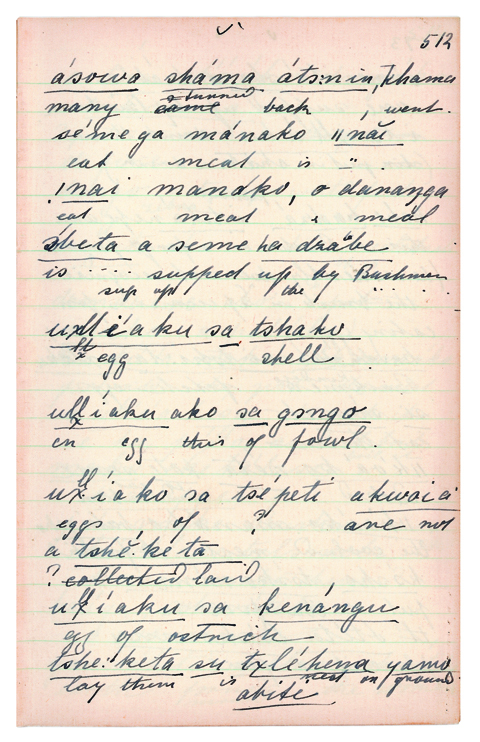 512
ásowa sháma átsmin, khama
many came turned back , went.
séme ga mánako ǁnăi
eat meat is
ǃnai manako, o dananga
eat meat , meal
sbeta a seme ha dzábe
is ..... supped up by Bushmen
sup up the
aku sa tshako
egg shell
íaku ako sa gongo
egg this of fowl.
íako sa tsépeti akwaiá
eggs of ? are not
a tshĕ.ke ta
? collected laid
íaku sa kenángu
of ostrich
tshe:keta su txléhena yamo
lay them is nest on ground
abite